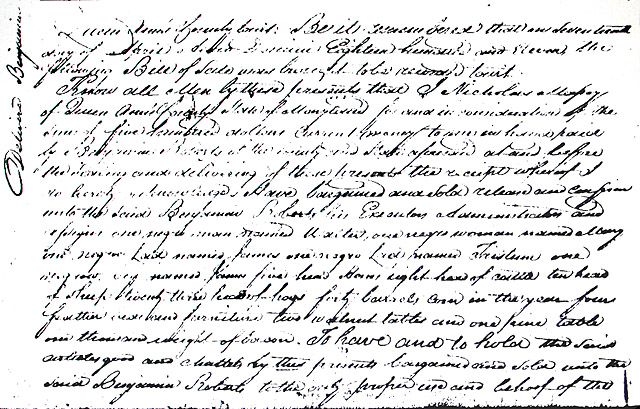 Delivered Benjamin
Queen Ann's County towit: Be it remembered that on seventeenth
day of April Anno Domini Eighteen hundred and eleven the
following Bill of Sale was brought to be recorded towit.
Know all Men by these presents that I Nicholas Massy
of Queen Ann's County State of Maryland for and in consideration of the
sum of five hundred dollars current money to me in hand paid
by Benjamin Roberts of the County and State aforesaid at and before
the sealing and delivering of these presents the receipt whereof I
do hereby acknowledge Have bargained and sold release and confirm
unto the said Benjamin Roberts his Executors Administrators and
assigns one negro man named Walter, one negro woman named Mary
one negro Lad named James one negro Lad named Tristum one
negro boy named James five head Horses eight head of cattle ten head
of sheep twenty three head of hogs forty barrels corn in the year four
feather beds and furniture two walnut tables and one pine table
one thousand weight of bacon. To have and to hold the said
articles good and chattels by this presents bargained and sold unto the
said Benjamin Roberts to the only proper use and behoof of the